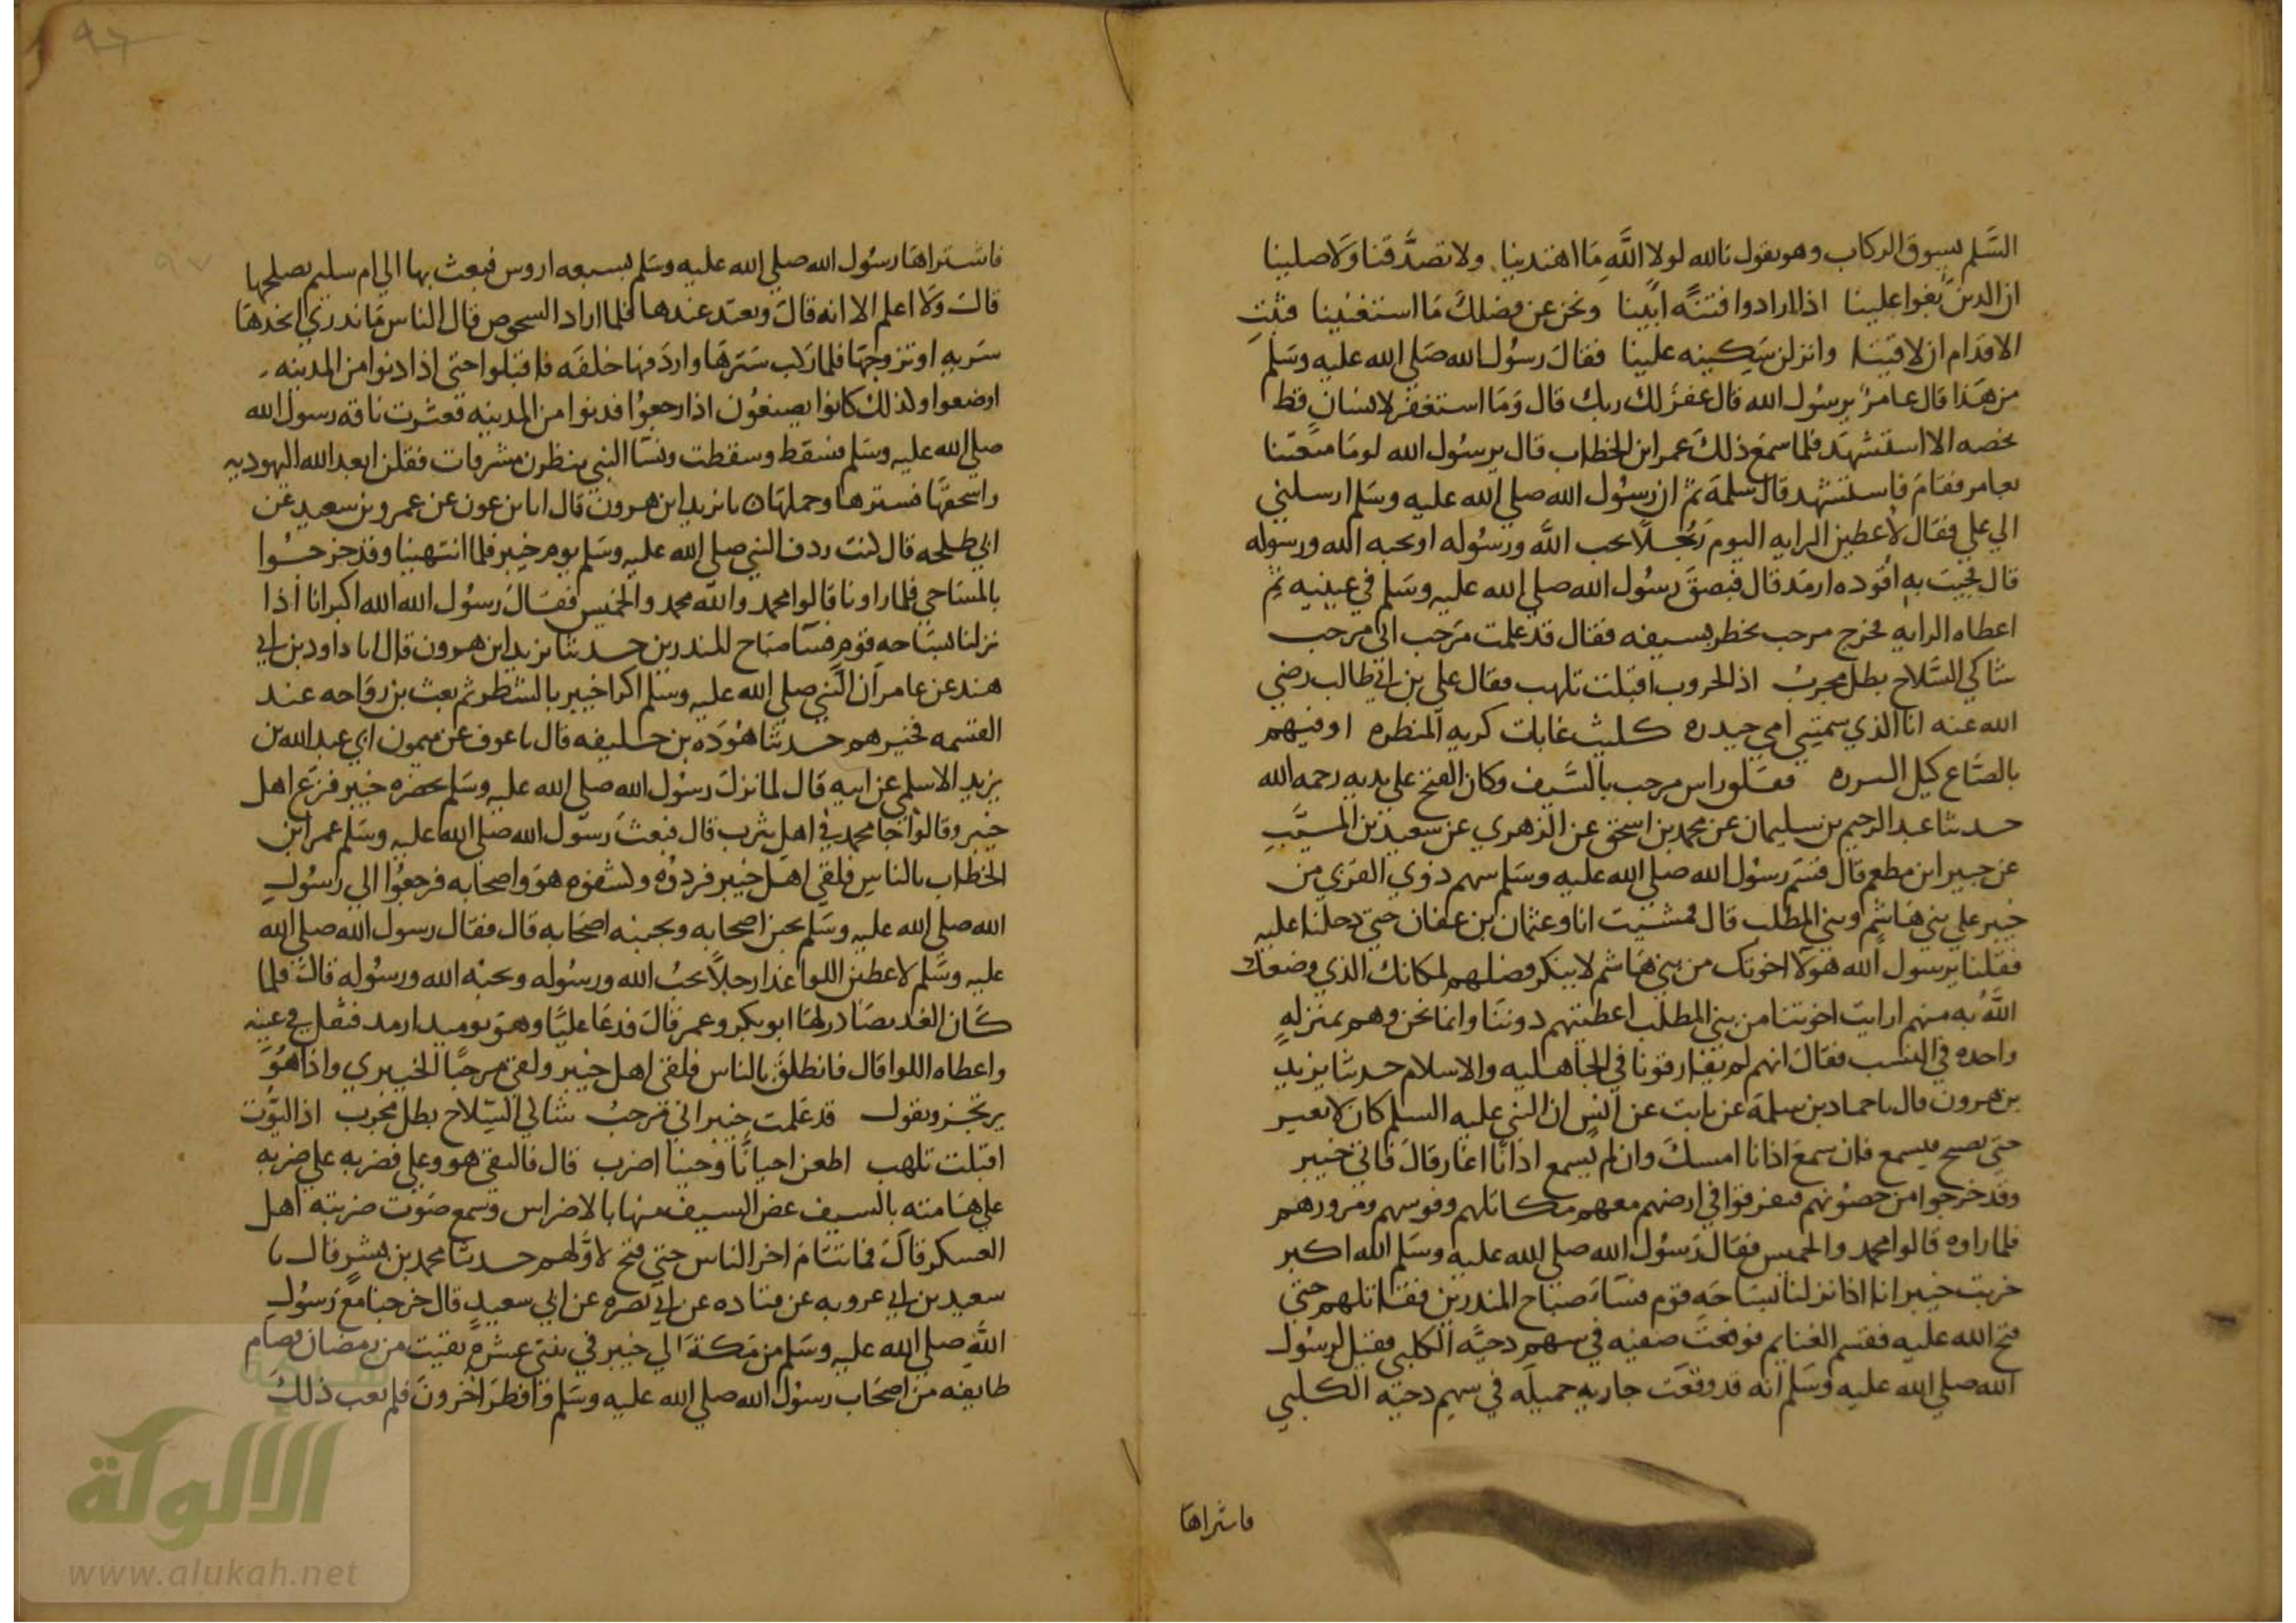 السَّلم يسوق الركاب وهو يقول تالله لولا الله ما اهتدينا ولا تصدَّقنا ولا صلينا
ان الذين بغوا علينا اذا ارادوا فتنة ابينا ونحن عن فضلك ما استغنينا فثبت
الاقدام ان لاقينا وانزلن سكينه علينا فقال رسول الله صلى الله عليه وسلم
من هذا قال عامر يرسول الله قال غفر لك ربك قال وما استغفر لانسان قط
يخصه الا استشهد فلما سمع ذلك عمر ابن الخطاب قال يرسول الله لو ما متعتنا
بعامر فقام فاستشهد قال سلمة ثم ان رسول الله صلى الله عليه وسلم ارسلني
الي علي فقال لأعطين الرايه اليوم رجلا يحب الله ورسوله او يحبه الله ورسوله
قال فجيت به اقوده ارمد قال فبصق رسول الله صلى الله عليه وسلم في عينيه ثم
اعطاه الرايه فخرج مرحب يخطر بسيفه فقال قد علمت مرحب اني مرحب
شاكي السلاح بطل مجرب اذا الحروب اقبلت تلهب فقال علي بن ابي طالب رضي
الله عنه انا الذي سمتني امي حيدره كليث غابات كريه المنظره اوفيهم
بالصاع كيل السره ففلق راس مرحب بالسيف وكان الفتح علي يديه رحمه الله
حدثنا عبد الرحيم بن سليمان عن محمد بن اسحق عن الزهري عن سعيد بن المسيب
عن جبير ابن مطعم قال قسم رسول الله صلى الله عليه وسلم سهم ذوي القربي من
خيبر علي بني هاشم وبني المطلب قال فمشيت انا وعثمان بن عفان حتي دخلنا عليه
فقلنا يرسول الله هولا اخوتك من بني هاشم لا ينكر فضلهم لمكانك الذي وضعك
الله به منهم ارايت اخوتنا من بني المطلب اعطيتهم دوننا وانما نحن وهم بمنزله
واحده في النسب فقال انهم لم يفارقونا في الجاهليه والاسلام حدثنا يزيد
بن هرون قال نا حماد بن سلمة عن ثابت عن انس ان النبي عليه السلم كان لا يغير
حتي يصبح فيسمع فان سمع اذانا امسك وان لم يسمع اذانا اغار قال فاتي خيبر
وقد خرجوا من حصونهم فتفرقوا في ارضهم معهم مكاتلهم وفوسهم ومرورهم
فلما راوه قالوا محمد والخميس فقال رسول الله صلى الله عليه وسلم الله اكبر
خربت خيبر انا اذا نزلنا بساحه قوم فساء صباح المنذرين فقاتلهم حتي
فتح الله عليه فقسم الغنايم فوقعت صفيه في سهم دحيه الكلبي فقيل لرسول
الله صلى الله عليه وسلم انه قد وقعت جاريه جميله في سهم دحيه الكلبي
فاشتراها
٩٦
٩٧
فاشتراها رسول الله صلى الله عليه وسلم بسبعه اروس فبعث بها الي ام سليم تصلحها
قال ولا اعلم الا انه قال وتعتد عندها فلما اراد الشخوص قال الناس ما ندري اتخذها
سريه او تزوجها فلما ركب سترها واردفها خلفه فاقبلوا حتي اذا دنوا من المدينه
اوضعوا ولذلك كانوا يصنعون اذا رجعوا فدنوا من المدينه فعثرت ناقه رسول الله
صلى الله عليه وسلم فسقط وسقطت ونسا النبي ينظرن مشرفات فقلن ابعد الله اليهوديه
واسحقها فسترها وحملها نا يزيد ابن هرون قال انا بن عون عن عمرو بن سعيد عن
ابي طلحه قال كنت ردف النبي صلى الله عليه وسلم يوم خيبر فلما انتهينا وقد خرجوا
بالمساحي فلما راونا قالوا محمد والله محمد والخميس فقال رسول الله الله اكبر انا اذا
نزلنا بساحه قوم فسا صباح المنذرين حدثنا يزيد ابن هرون قال انا داود بن ابي
هند عن عامر ان النبي صلى الله عليه وسلم اكرا خيبر بالشطر ثم بعث بن رواحه عند
القسمه فخيرهم حدثنا هوذه بن خليفه قال نا عوف عن ميمون ابي عبد الله بن
يزيد الاسلمي عن ابيه قال لما نزل رسول الله صلى الله عليه وسلم بحضره خيبر فزع اهل
خيبر وقالوا جا محمد في اهل يثرب قال فبعث رسول الله صلى الله عليه وسلم عمر ابن
الخطاب بالناس فلقي اهل خيبر فردوه وكشفوه هو واصحابه فرجعوا الي رسول
الله صلى الله عليه وسلم يجبن اصحابه ويجبنه اصحابه قال فقال رسول الله صلى الله
عليه وسلم لاعطين اللوا غدا رجلا يحب الله ورسوله ويحبه الله ورسوله قال فلما
كان الغد تصادر لها ابو بكر وعمر قال فدعا عليا وهو يوميد ارمد فتفل في عينه
واعطاه اللوا قال فانطلق بالناس فلقي اهل خيبر ولقي مرحبا الخيبري واذا هو
يرتجز ويقول قد علمت خيبر اني مرحب شاكي السلاح بطل مجرب اذا الليوث
اقبلت تلهب اطعن احيانا وحينا اضرب قال فالتقي هو وعلي فضربه علي ضربه
علي هامته بالسيف عض السيف منها بالاضراس وسمع صوت ضربته اهل
العسكر قال فما تتام اخر الناس حتي فتح لاولهم حدثنا محمد بن بشر قال نا
سعيد بن ابي عروبه عن قتاده عن ابي نضره عن ابي سعيد قال خرجنا مع رسول
الله صلى الله عليه وسلم من مكة الي خيبر في ثنتي عشره بقيت من رمضان فصام
طايفه من اصحاب رسول الله صلى الله عليه وسلم وافطر اخرون فلم يعب ذلك
الألوكة
www.alukah.net